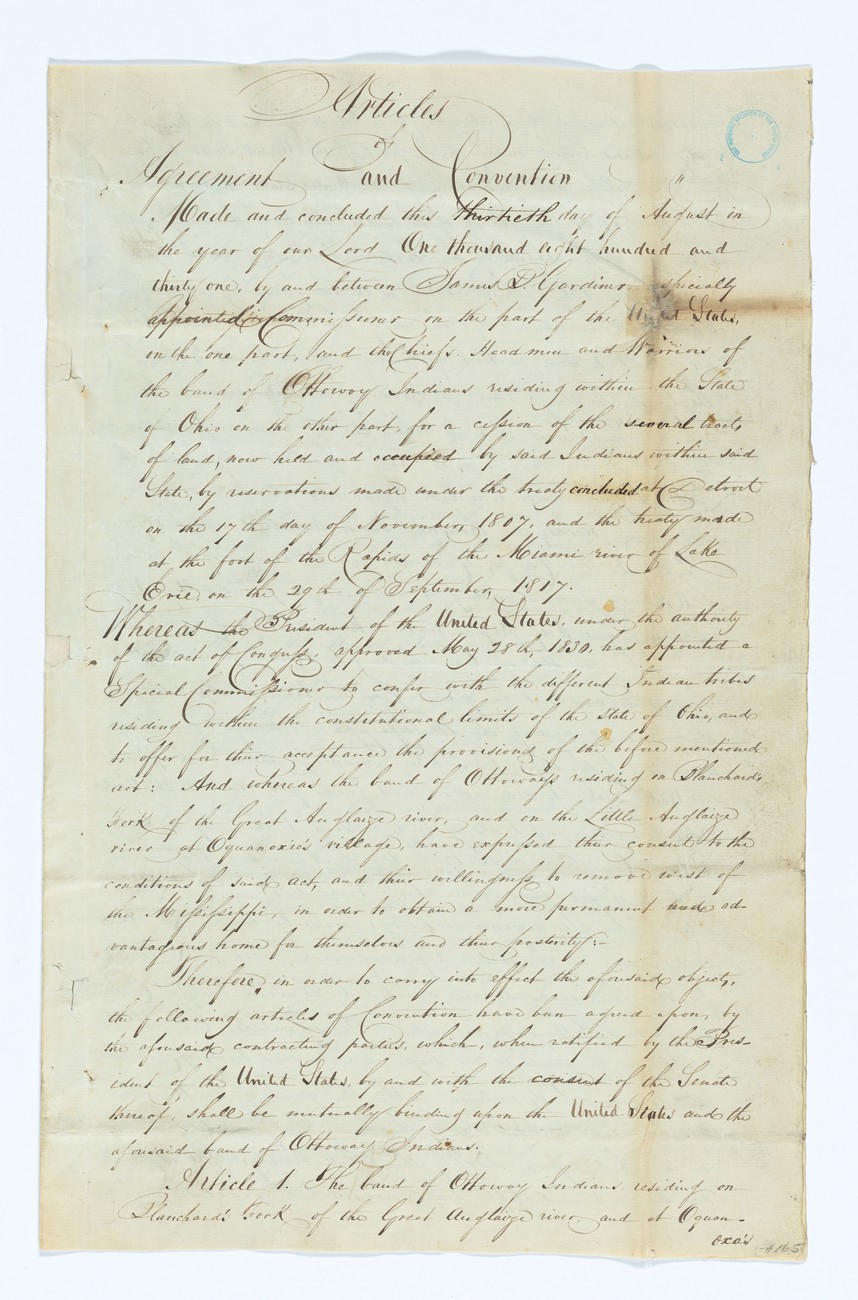 Articles
of
Agreement and Convention "
Made and concluded this thirtieth day of August in
the year of our Lord One thousand eight hundred and
thirty one, by and between James B. Gardiner, specially
appointed Commissioner on the part of the United States,
on the one part, and the Chiefs, Head men and Warriors of
the band of Ottoway Indians residing within the State
of Ohio on the other part, for a cession of the several tracts
of land, now held and occupied by said Indians within said
State, by reservations made under the treaty concluded at Detroit
on the 17th day of November, 1807, and the treaty made
at the foot of the Rapids of the Miami river of Lake
Erie, on the 29th of September, 1817.
Whereas the President of the United States, under the authority
of the act of Congress, approved May 28th, 1830, has appointed a
Special Commissioner to confer with the different Indian tribes
residing within the constitutional limits of the State of Ohio, and
to offer for their acceptance the provisions of the before mentioned
act: And whereas the band of Ottoways residing on Blanchard's
Fork of the Great Auglaize river, and on the Little Auglaize
river at Oquanoxie's village, have expressed their consent to the
conditions of said act, and their willingness to remove west of
the Mississippi, in order to obtain a more permanent and ad-
vantageous home for themselves and their posterity:-
Therefore, in order to carry into effect the aforesaid objects,
the following articles of Convention have been agreed upon, by
the aforesaid contracting parties, which, when ratified by the Pres-
ident of the United States, by and with the consent of the Senate
thereof, shall be mutually binding upon the United States and the
aforesaid band of Ottoway Indians.
Article 1. The band of Ottoway Indians residing on
Blanchard's Fork of the Great Auglaize river, and at Oquan-
oxa's
#165